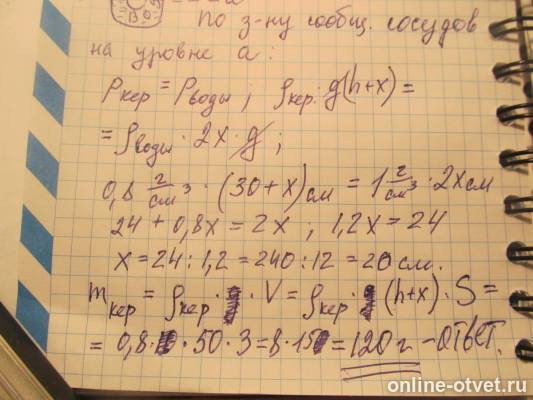 По з-ну сообщ. сосудов
на уровне а:
Pкер = Pводы; ρкер·g(h+x) =
= ρводы · 2x · g;
0,8 г/см³ · (30+x)см = 1 г/см³ · 2x см
24 + 0,8x = 2x, 1,2x = 24
x = 24 : 1,2 = 240 : 12 = 20 см.
mкер = ρкер · V = ρкер · (h+x) · S =
= 0,8 · 50 · 3 = 8 · 15 = 120 г – ответ.
online-otvet.ru